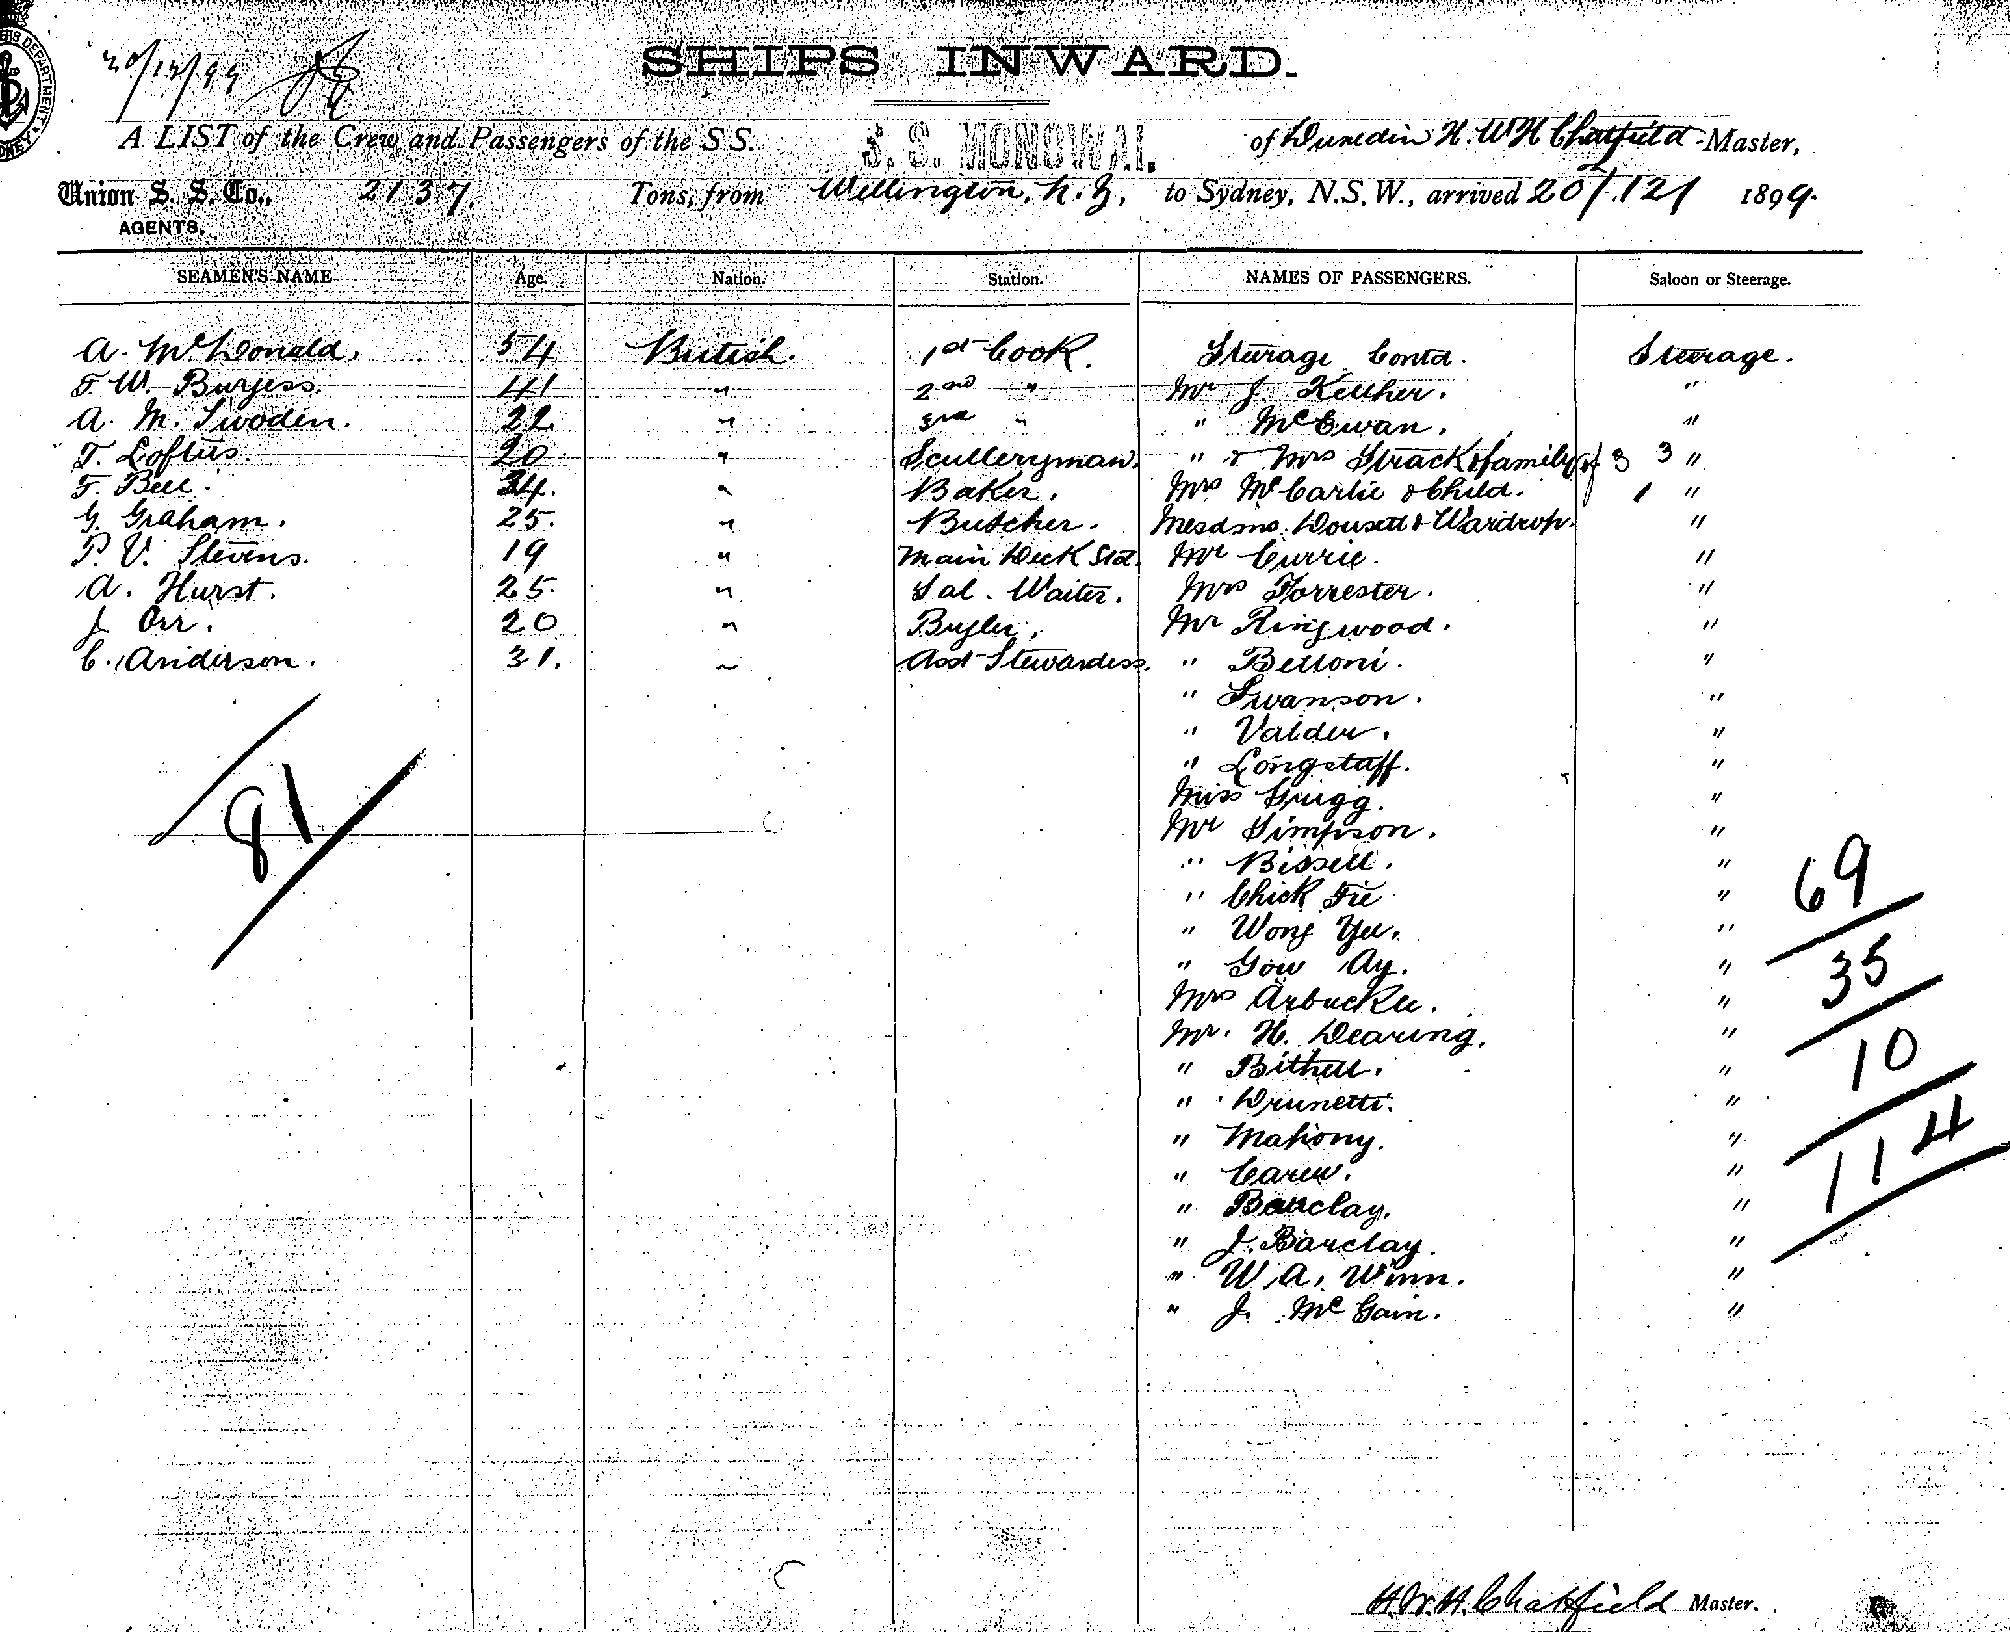 20/12/99
SHIPS INWARD.
A LIST of the Crew and Passengers of the S S. S. S. MONOWAI. of Dunedin H. W H Chatfield - Master,
Union S. S. Co., 2137. Tons, from Wellington, N. Z, to Sydney, N.S.W., arrived 20/12/ 1899.
AGENTS.
SEAMEN'S NAME Age. Nation. Station. NAMES OF PASSENGERS. Saloon or Steerage.
A. McDonald. 54 British. 1st Cook. Steerage Contd. Steerage.
F. W. Burgess. 41 " 2nd " Mr J. Kelther. "
A. M. Swoden. 22 " 3rd " " McEwan. "
T. Loftus. 20 " Sculleryman. " & Mrs Strack & family of 3 3 "
F. Bell. 34. " Baker. Mrs McCarlie & Child. 1 "
G. Graham. 25. " Butcher. Mesdms. Dousett & Wardrop. "
P. V. Stevens. 19 " Main Deck Std. Mr Currie. "
A. Hurst. 25. " Sal. Waiter. Mrs Forrester. "
J Orr. 20 " Bugler. Mr Ringwood. "
C. Anderson. 31. " Asst Stewardess. " Belloni. "
" Swanson. "
" Valder. "
" Longstaff. "
Miss Grigg. "
Mr Simpson. "
81
" Bissell. "
69
" Chick Fie "
" Wong Yee. "
" Gow Ay. "
35
Mrs Arbuckle. "
Mr. H. Dearing. "
10
" Bithell. "
" Drunetti. "
" Mahony. "
114
" Carew. "
" Barclay. "
" J. Barclay. "
" W. A. Winn. "
" J. McGain. "
H. W. H. Chatfield Master.